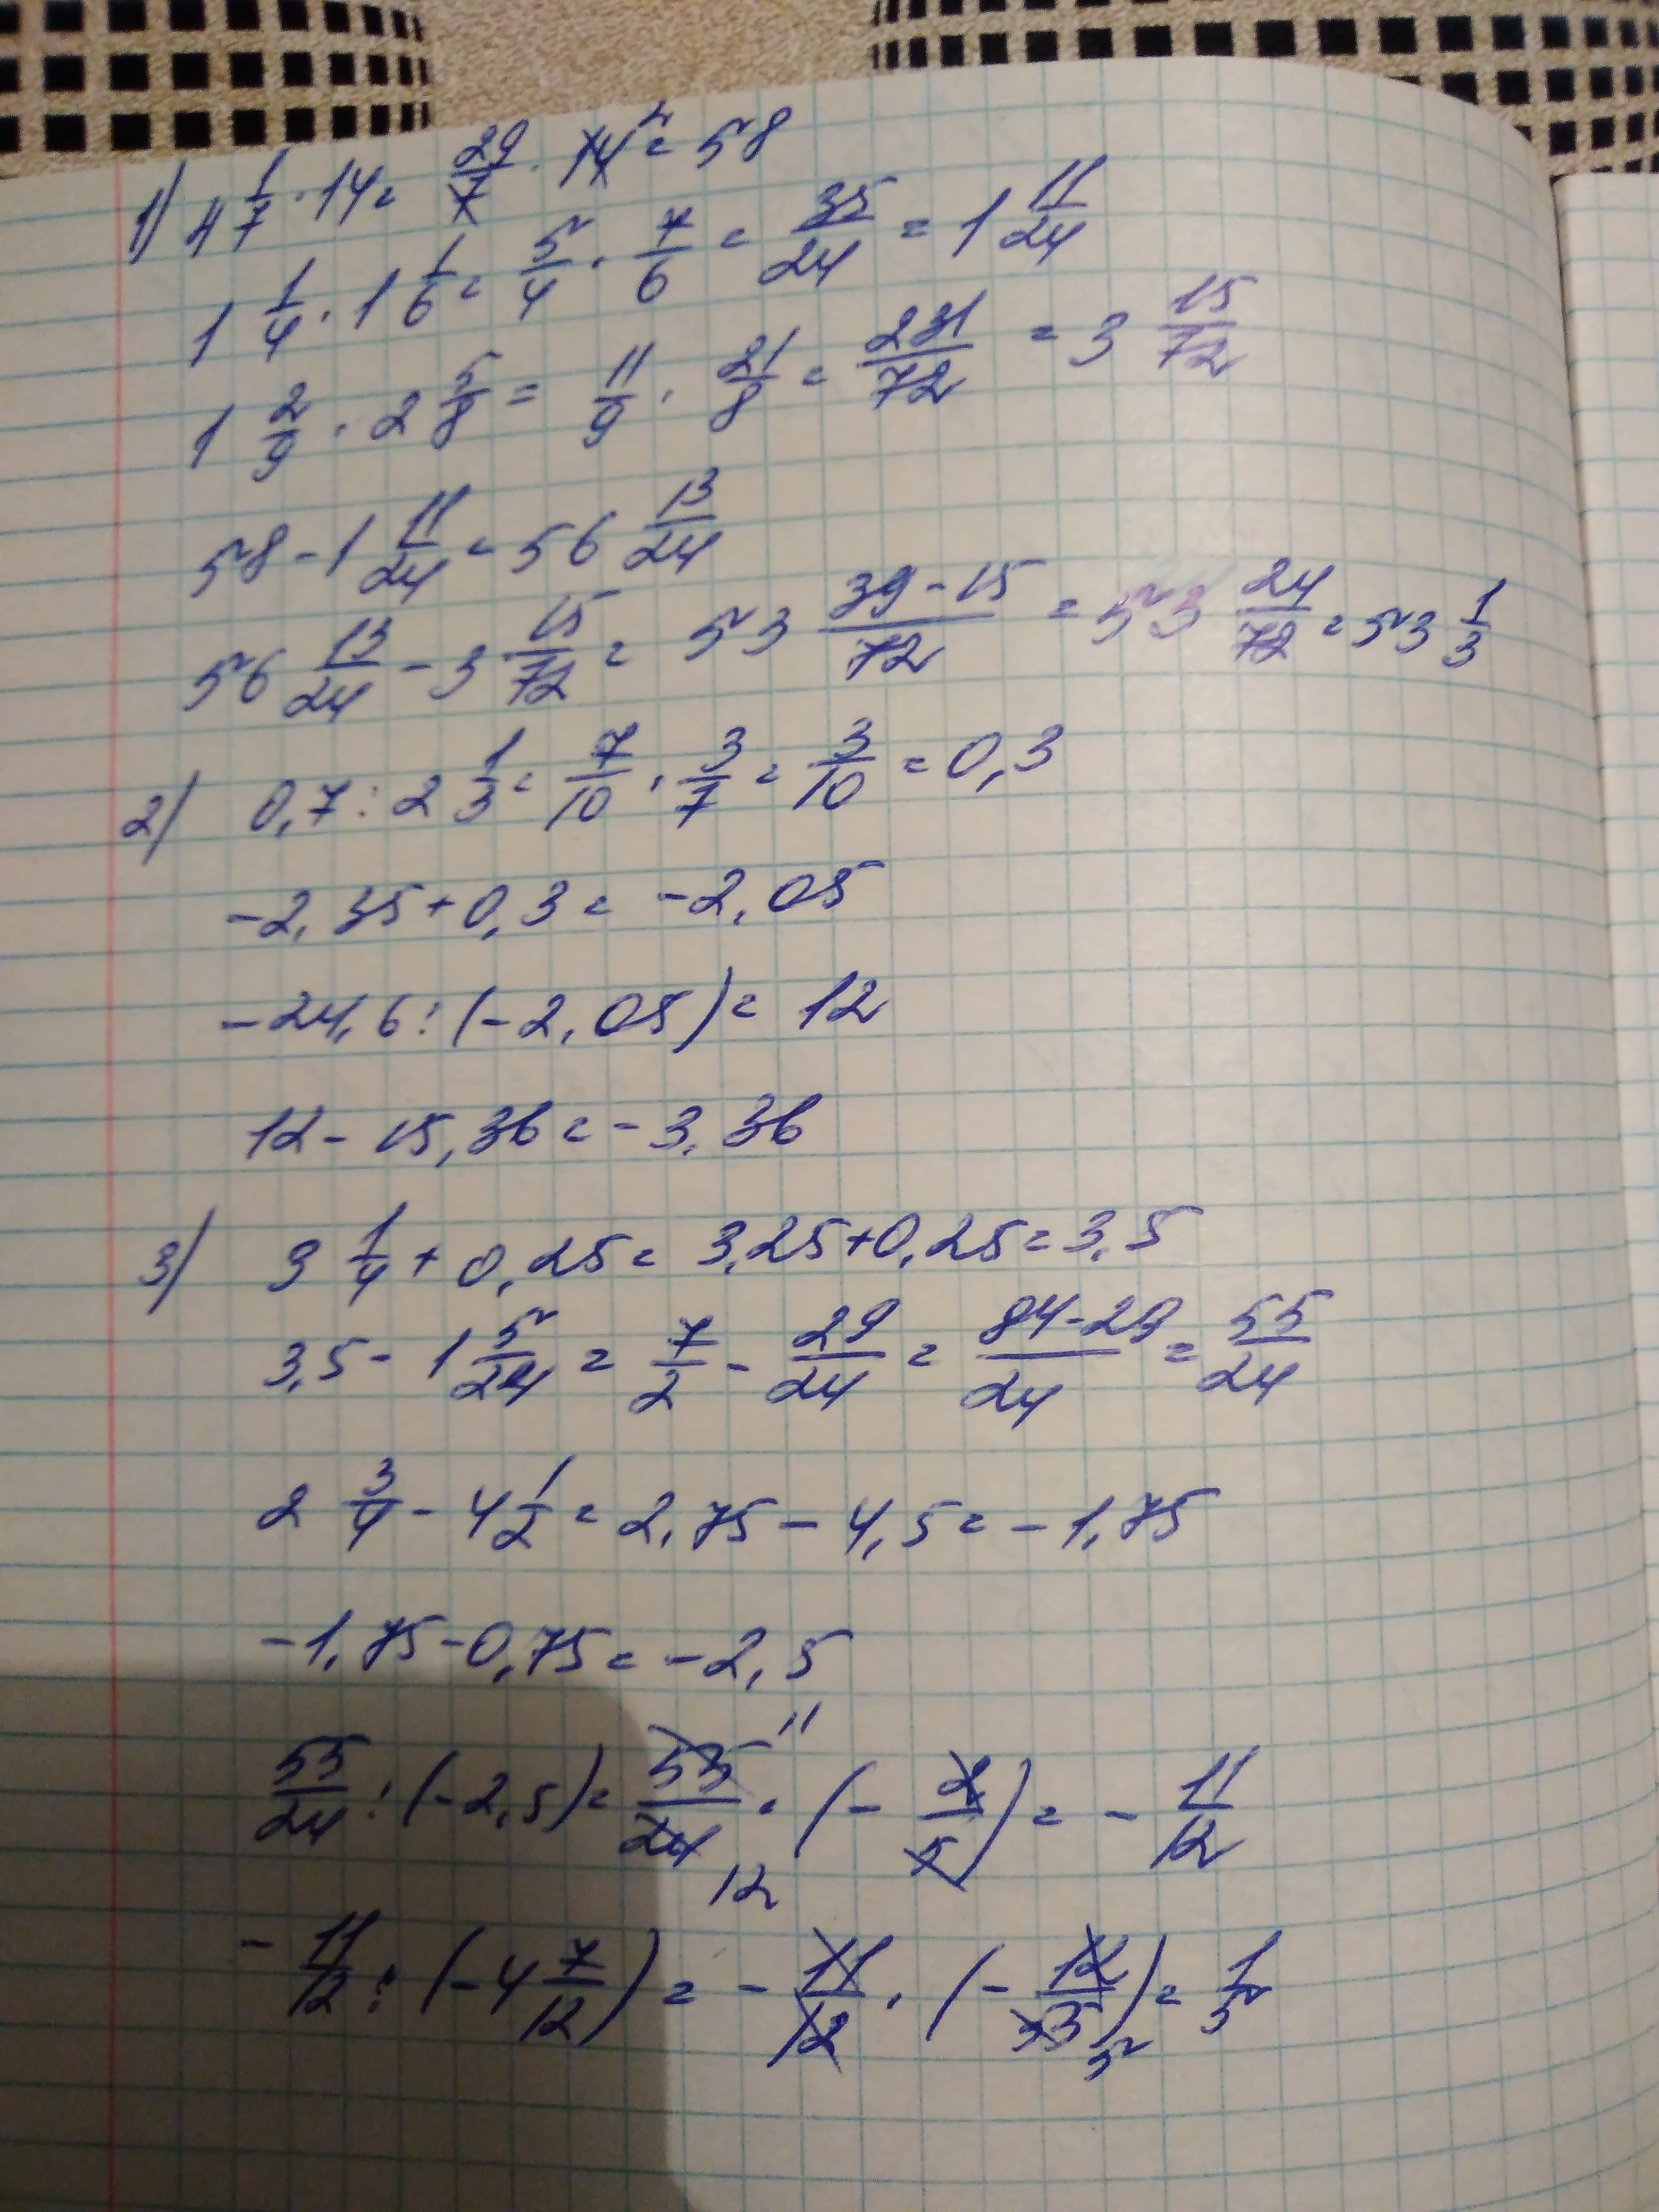 1) 4 1/7 · 14 = 29/7 · 14 2 = 58
1 1/4 · 1 1/6 = 5/4 · 7/6 = 35/24 = 1 11/24
1 2/9 · 2 5/8 = 11/9 · 21/8 = 231/72 = 3 15/72
58 - 1 11/24 = 56 13/24
56 13/24 - 3 15/72 = 53 39-15/72 = 53 24/72 = 53 1/3
2) 0,7 : 2 1/3 = 7/10 · 3/7 = 3/10 = 0,3
-2,35 + 0,3 = -2,05
-24,6 : (-2,05) = 12
12 - 15,36 = -3,36
3) 3 1/4 + 0,25 = 3,25 + 0,25 = 3,5
3,5 - 1 5/24 = 7/2 - 29/24 = 84-29/24 = 55/24
2 3/4 - 4 1/2 = 2,75 - 4,5 = -1,75
-1,75 - 0,75 = -2,5
55/24 : (-2,5) = 55 11/24 12 · (- 2/5) = - 11/12
- 11/12 : (-4 7/12) = - 11/12 · (- 12/55 5) = 1/5